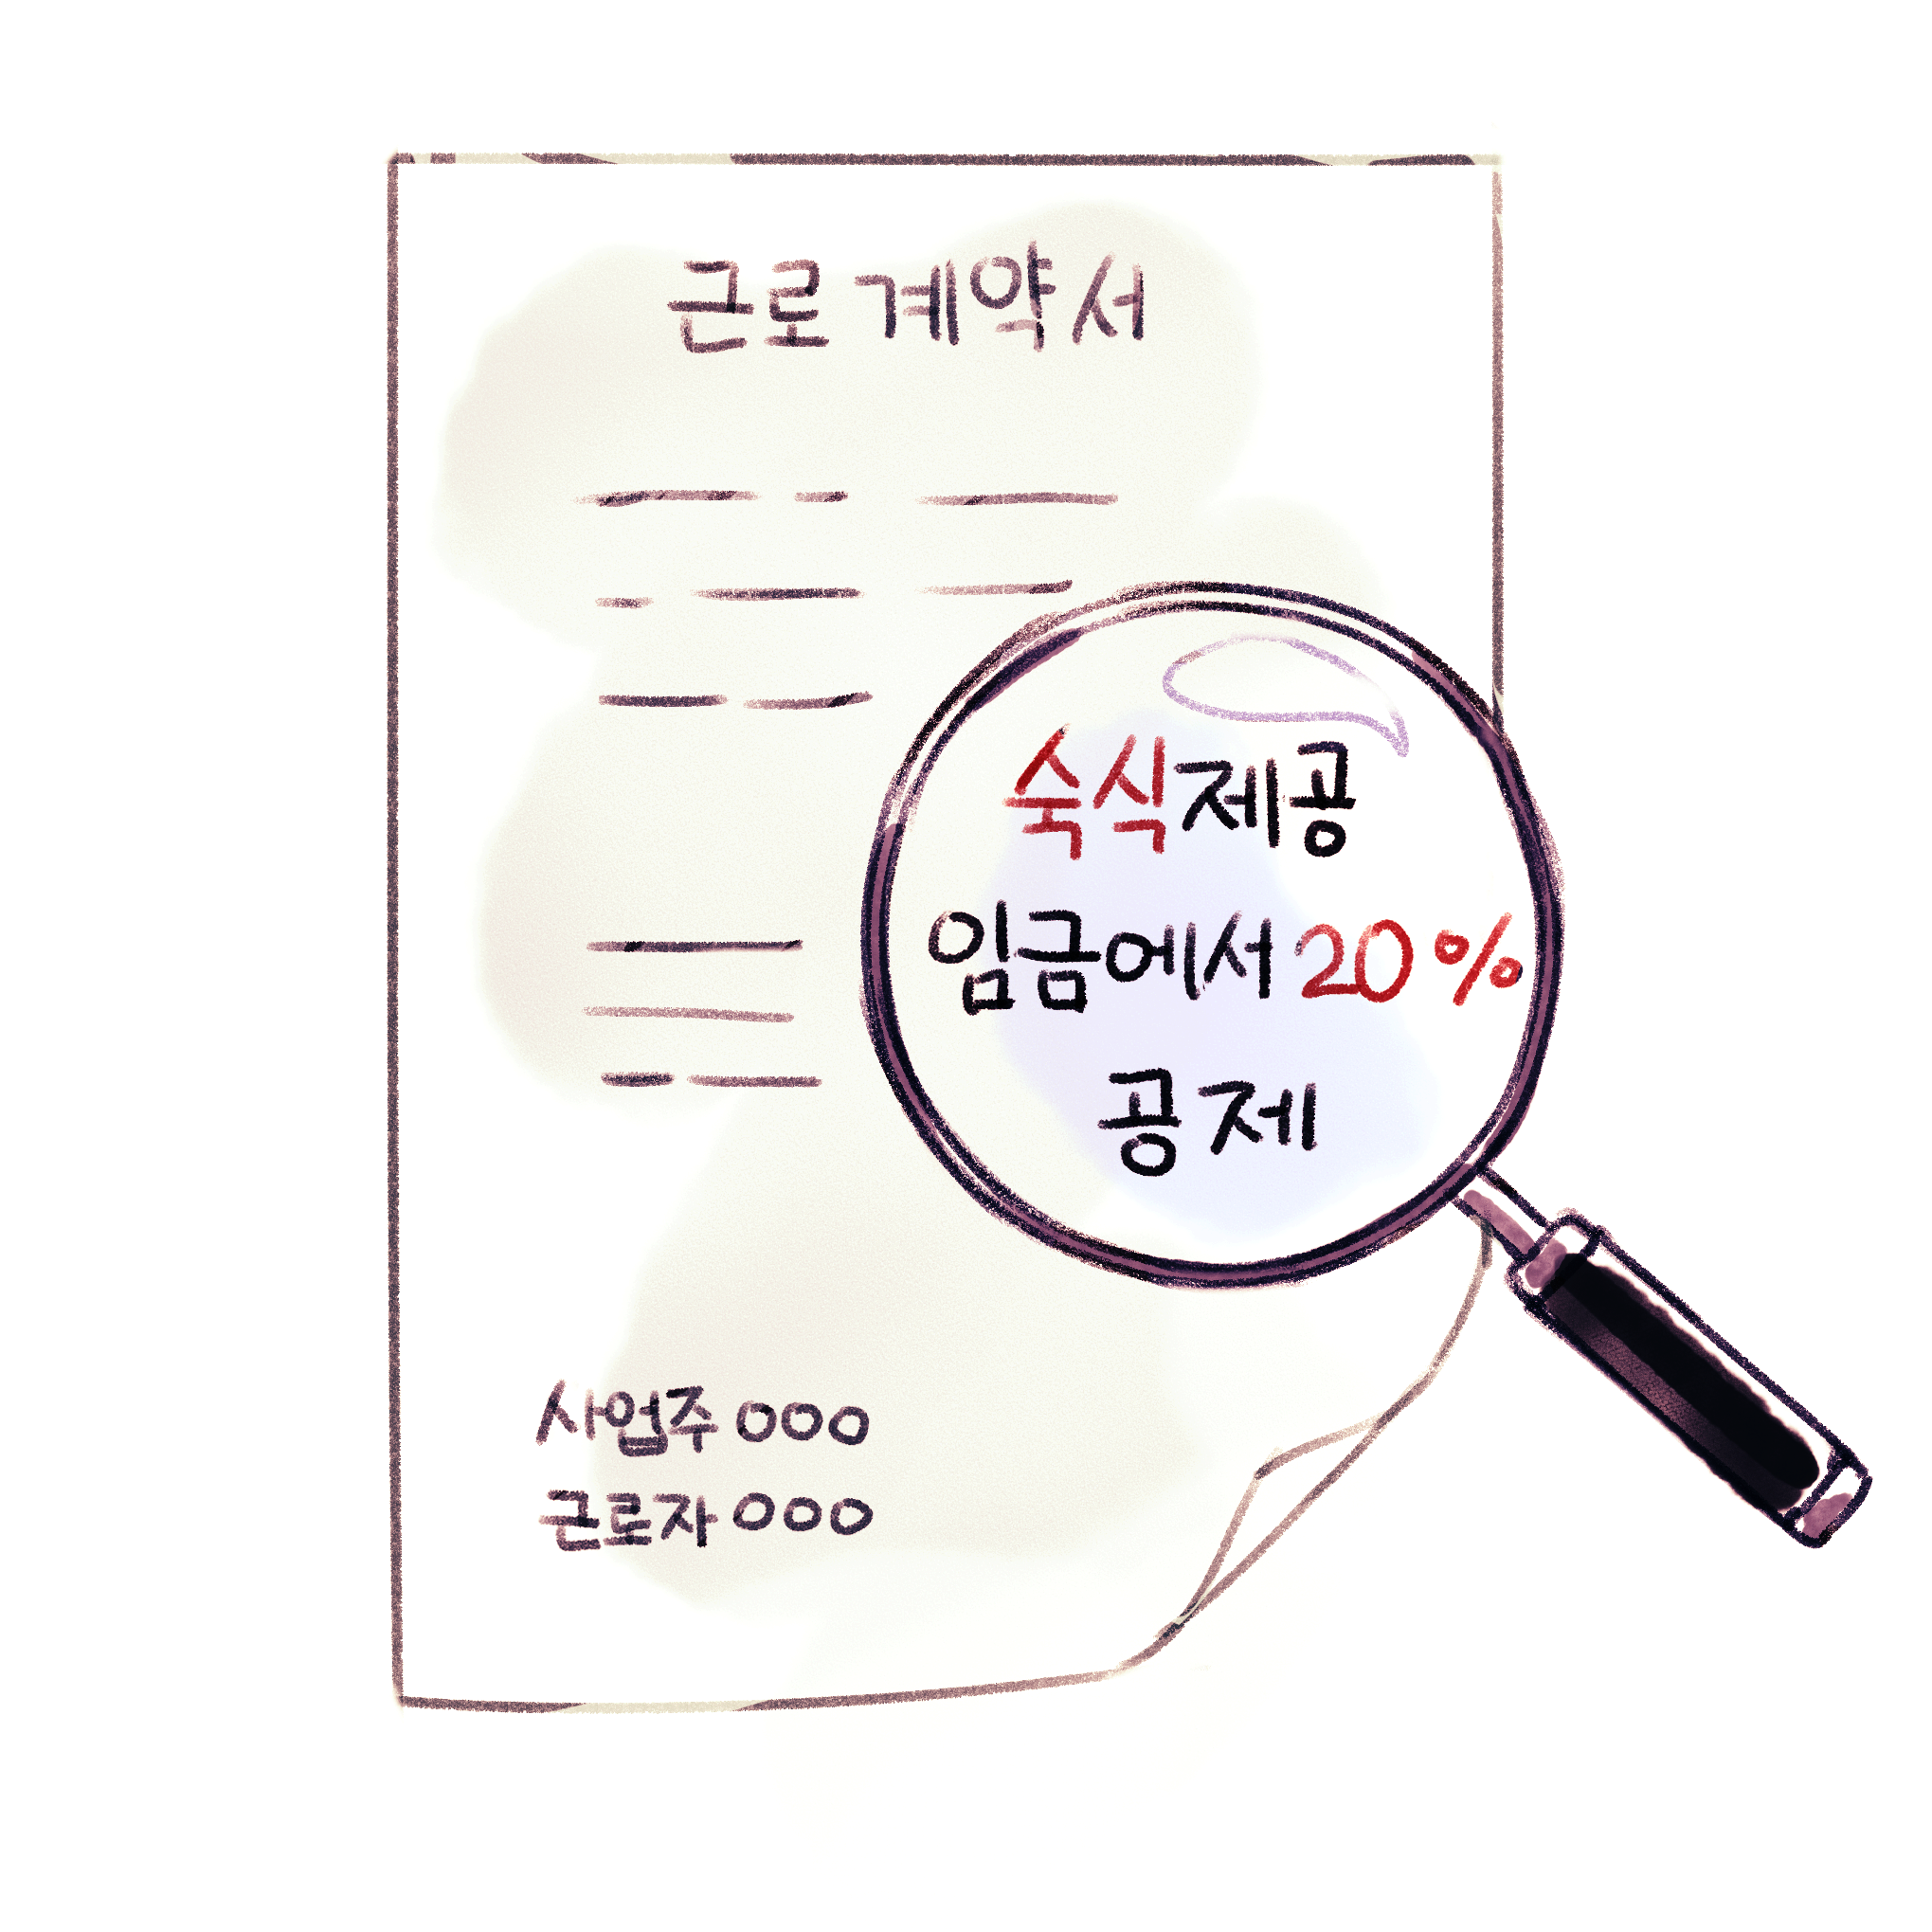 근로계약서
숙식제공
임금에서 20%
공제
사업주 OOO
근로자 OOO